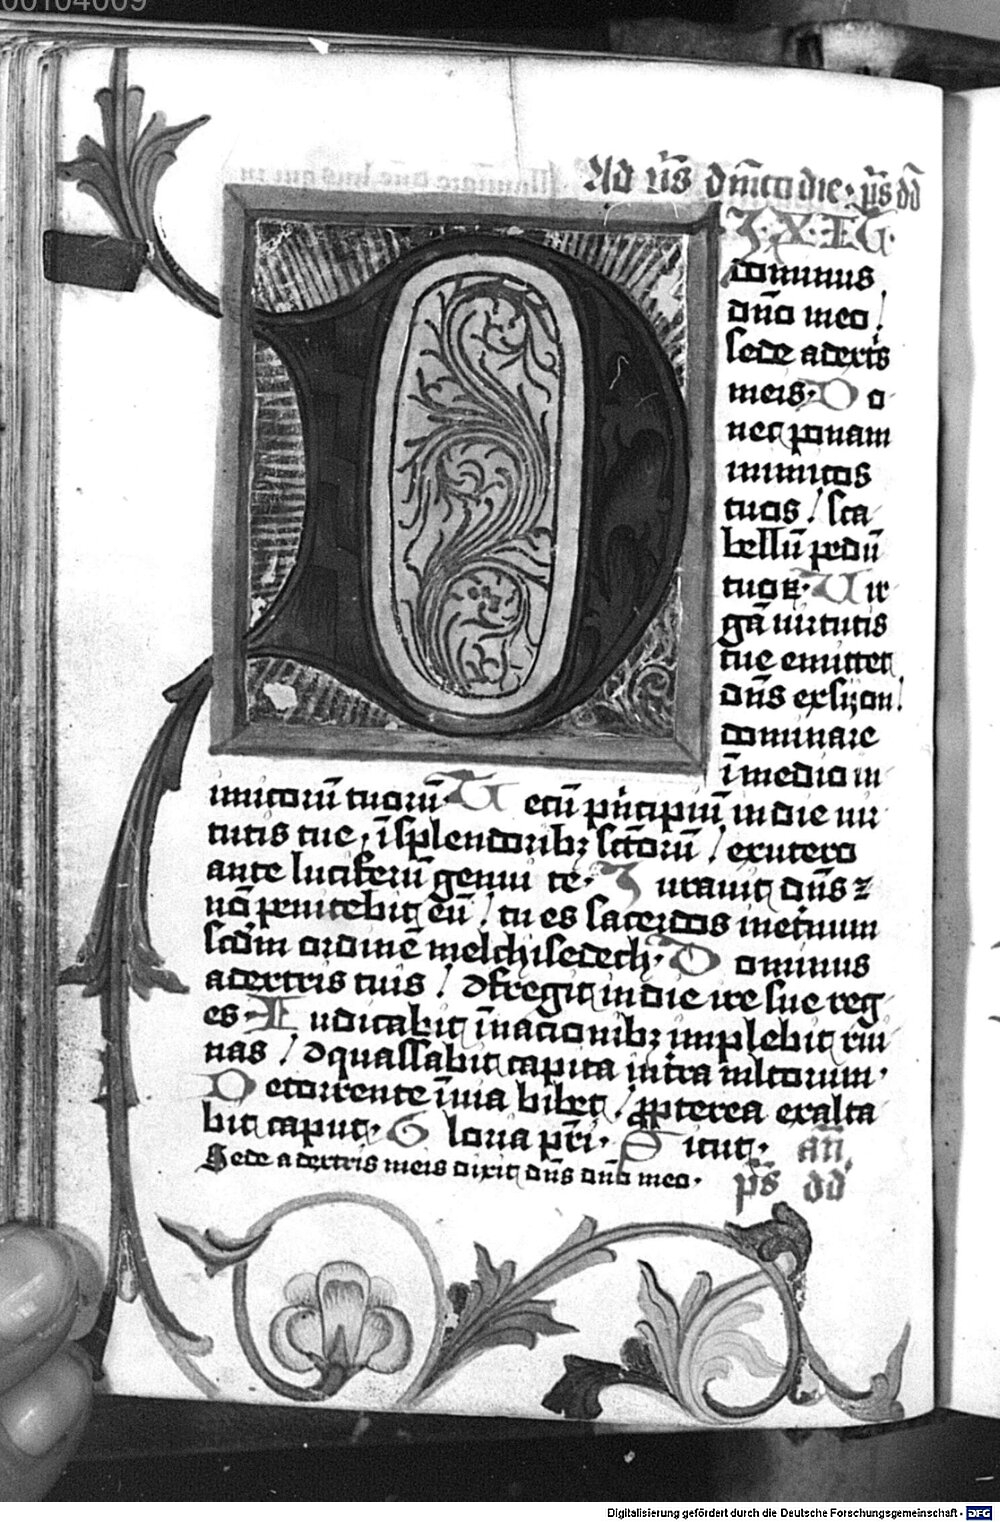 00104009
Ad vs̄ dn̄ica die ps̄ dd̄
D IXIT
dominus
dn̄o meo /
sede adextris
meis. D o
nec ponam
inimicos
tuos / sca
bellū pedū
tuoꝝ. U ir
gā uirtutis
tue emittet
dn̄s ex syon /
dominare
ī medio in
imicorū tuorū. T ecū pͥncipiū in die uir
tutis tue, ī splendoribꝫ sctōrū / ex utero
ante luciferū genui te. I urauit dn̄s ⁊
nō penitebit eū / tu es sacerdos inet̄num
scdm̄ ordinē melchisedech. D ominus
adextris tuis / ꝯfregit in die ire sue reg
es. I udicabit ī nacionibꝫ implebit rui
nas / ꝯquassabit capita in tra mltorum.
D e torrente ī uia bibet / ꝓpterea exalta
bit caput. G loria pr̄i. S icut. an̄
Sede adextris meis dixit dn̄s dn̄o meo. ps̄ dd̄
Digitalisierung gefördert durch die Deutsche Forschungsgemeinschaft - DFG